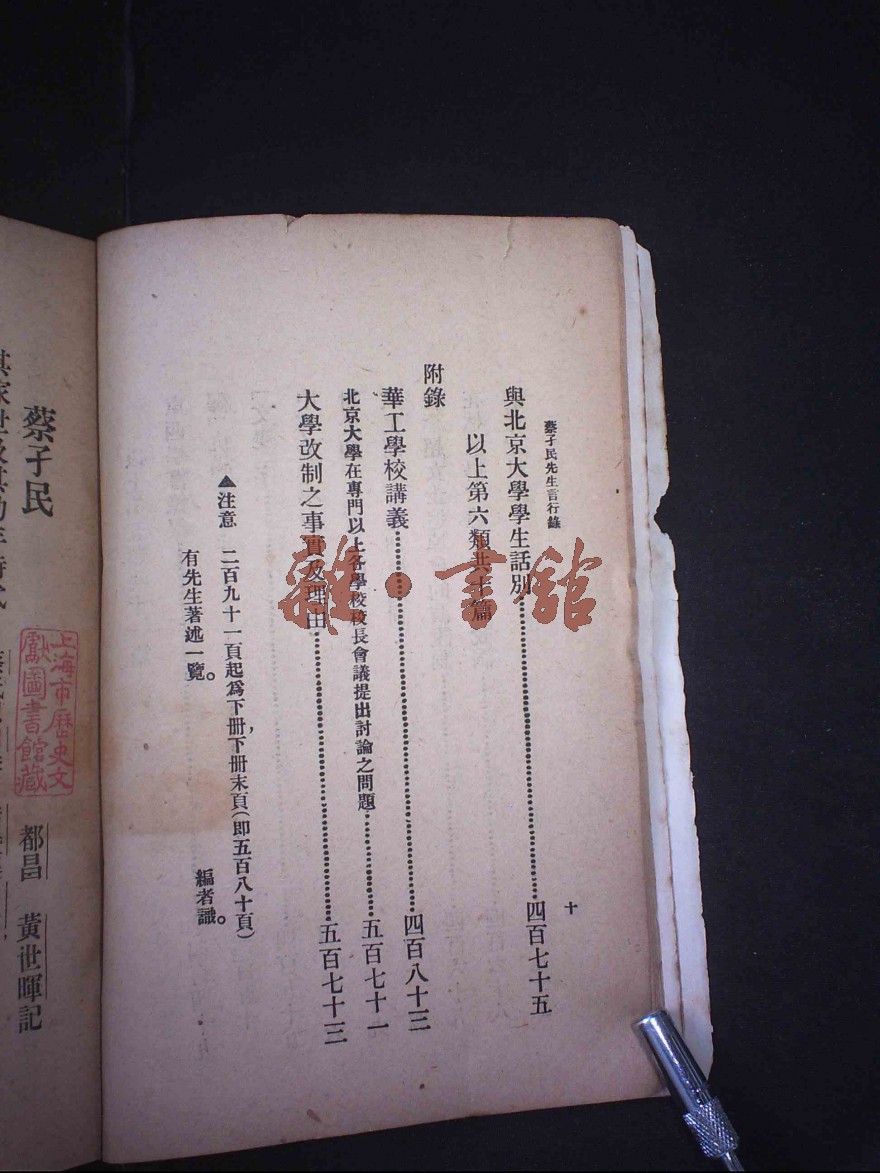 蔡孑民先生言行錄
十
與北京大學學生話別……四百七十五
以上第六類共十篇
附錄
華工學校講義……四百八十三
北京大學在專門以上各學校校長會議提出討論之問題……五百七十一
大學改制之事實及理由……五百七十三
▲注意 二百九十一頁起爲下册,下册末頁(即五百八十頁)
有先生著述一覽。
編者識。
雜·書館
蔡孑民
都昌 黃世暉記
其家世及其幼年時代
上海市歷史文
獻圖書館藏